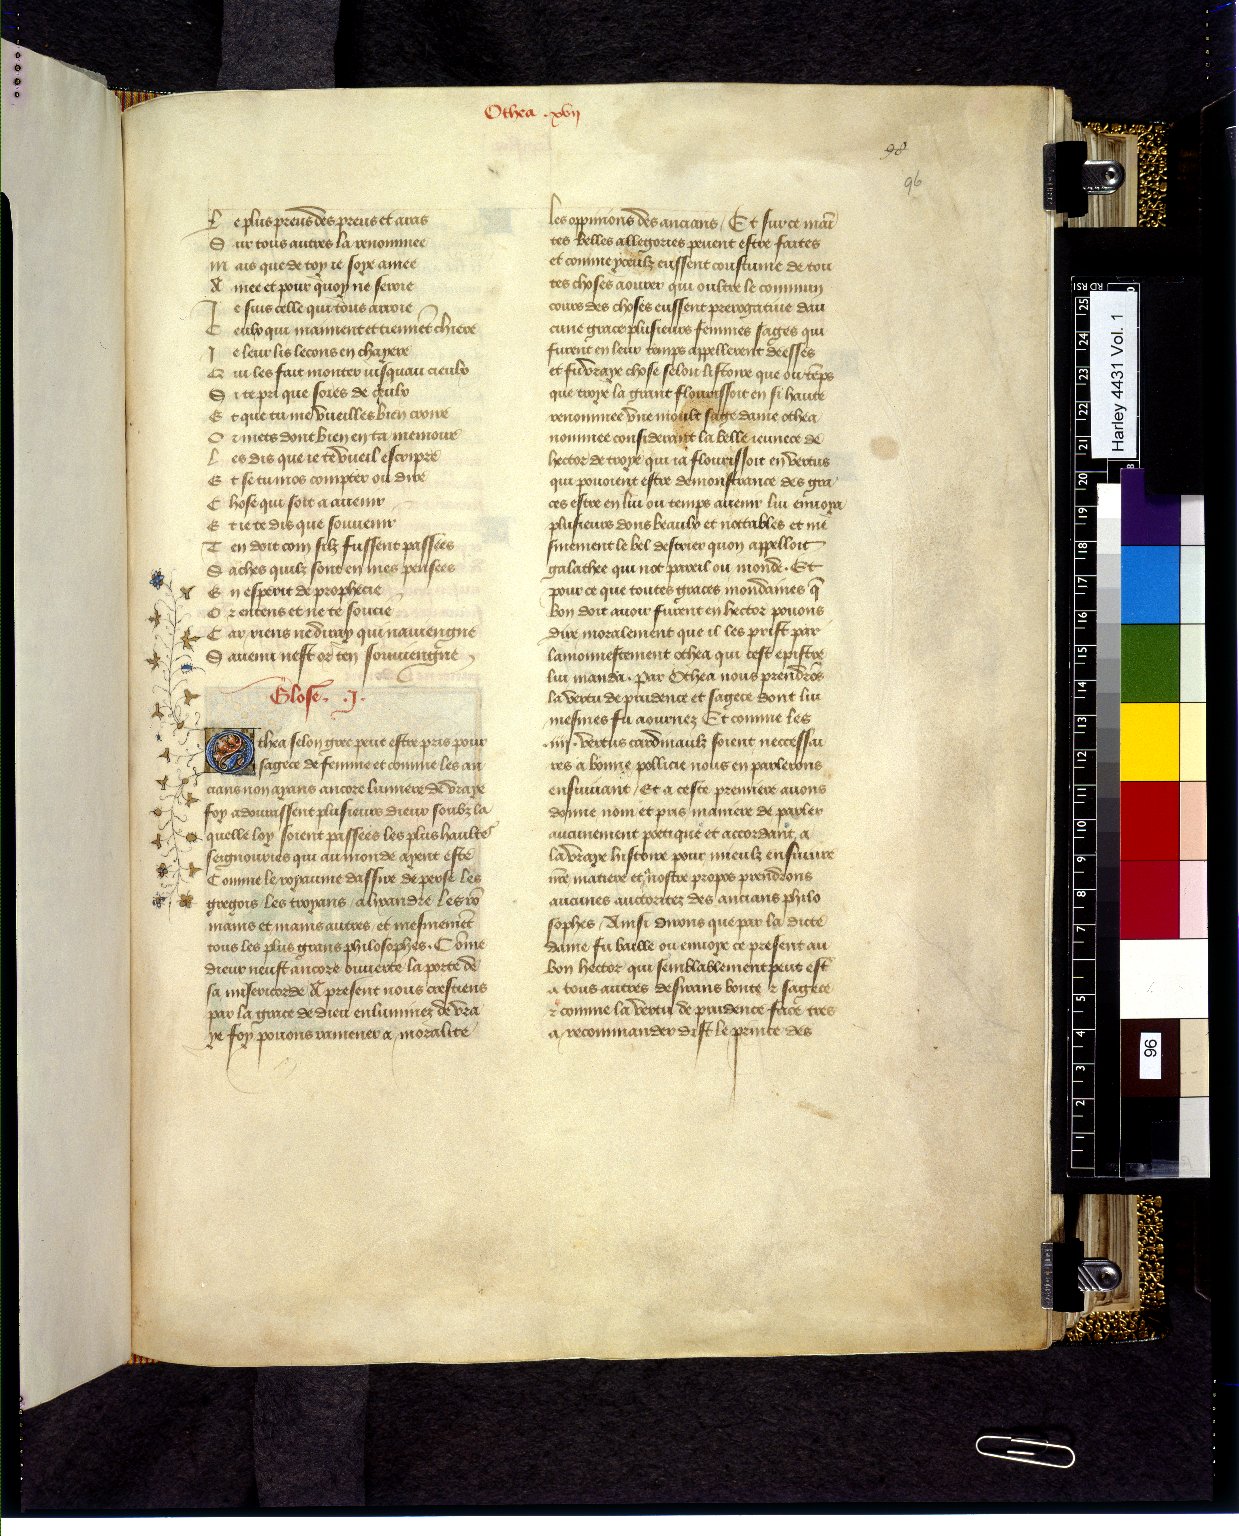 Othea .xvii
98
96
Le plus preus des preus et aras
Sur tous autres la renommee
Mais que de toy ie soye amee
Amee et pour quoy ne seroie
Ie suis celle qui tous arroie
Ceulx qui maiment et tiennẽt chiere
Ie leur lis lecons en chayere
Qui les fait monter iusquau cieulx
Si te pri que soies de ceulx
Et que tu me vueilles bien croire
Or mets dont bien en ta memoire
Les dis que ie te vueil escripre
Et se tu mos compter ou dire
Chose qui soit a auenir
Et ie te dis que souuenir
Ten doit com silz fussent passees
Saches quilz sont en mes pensees
En esperit de prophecie
Or entens et ne te soucie
Car riens ne diray qui nauiengne
Sauenu nest or ten souuiengne
Glose .I.
Othea selon grec peut estre pris pour
sagece de femme et comme les an
cians non ayans ancore lumiere de vraye
foy adourassent plusieurs dieux soubz la
quelle loy soient passees les plus haultes
seignouries qui au monde ayent este
Comme le royaume dassire de perse les
gregois les troyans alixandre les ro
mains et mains autres et mesmemẽt
tous les plus grans philosophes. Cõme
dieux neust ancore ouuerte la porte de
sa misericorde A present nous crestiens
par la grace de dieu enluminez de vra
ye foy pouons ramener a moralite
les oppinions des ancians / Et sur ce mai͂
tes belles allegories peuent estre faites
et comme yceulz eussent coustume de tou
tes choses aourer qui oultre le commun
cours des choses eussent prerogatiue dau
cune grace plusieurs femmes sages qui
furent en leur temps appellerent deesses
et fu vraye chose selon listoire que ou tẽps
que troye la grant flourissoit en si haute
renommee vne moult sage dame othea
nommee considerant la belle ieunece de
hector de troye qui ia flourissoit en vertus
qui pouoient estre demonstrance des gra
ces estre en lui ou temps auenir lui enuoya
plusieurs dons beaulx et nottables et me
smement le bel destrier quon appelloit
galathee qui not pareil ou monde. Et
pour ce que toutes graces mondaines q̃
bon doit auoir furent en hector pouons
dire moralement que il les prist par
lamonnestement othea qui cest epistre
lui manda. Par Othea nous prendrõs
la vertu de prudence et sagece dont lui
mesmes fu aournez Et comme les
.iiii. vertus cardinaulz soient neccessai
res a bonne pollicie nous en parlerons
ensuiuant / Et a ceste premiere auons
donne nom et pris maniere de parler
aucunement poetique et accordant a
la vraye histoire pour mieulz ensuiure
nr̃e matiere et a nostre propos prendrons
aucunes auctoritez des ancians philo
sophes / Ainsi dirons que par la dicte
dame fu baille ou enuoye ce present au
bon hector qui semblablement peut estr̃
a tous autres desirans bonte ⁊ sagece
⁊ comme la vertu de prudence face tres
a recommander dist le prince des
Harley 4431 Vol. 1
96